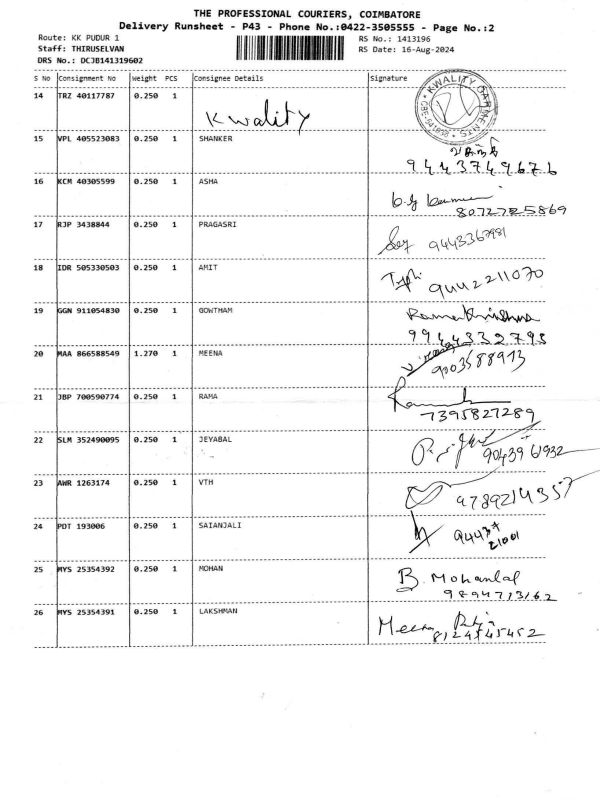 THE PROFESSIONAL COURIERS, COIMBATORE
Delivery Runsheet - P43 - Phone No.:0422-3505555 - Page No.:2
Route: KK PUDUR 1 RS No.: 1413196
Staff: THIRUSELVAN RS Date: 16-Aug-2024
DRS No.: DCJB141319602
S No Consignment No Weight PCS Consignee Details Signature
14 TRZ 40117787 0.250 1 Kwality KWALITY GARMENTS
15 VPL 405523083 0.250 1 SHANKER
9443749676
16 KCM 40305599 0.250 1 ASHA
8072725869
17 RJP 3438844 0.250 1 PRAGASRI
9443367981
18 IDR 505330503 0.250 1 AMIT
9442211070
19 GGN 911054830 0.250 1 GOWTHAM Ramakrishna
9944332795
20 MAA 866588549 1.270 1 MEENA
9003588913
21 JBP 700590774 0.250 1 RAMA
7395827289
22 SLM 352490095 0.250 1 JEYABAL
9043961932
23 AWR 1263174 0.250 1 VTH
4789214357
24 PDT 193006 0.250 1 SAIANJALI
94437
21001
25 MYS 25354392 0.250 1 MOHAN B. Mohanlal
9894713162
26 MYS 25354391 0.250 1 LAKSHMAN Meena
8124545452